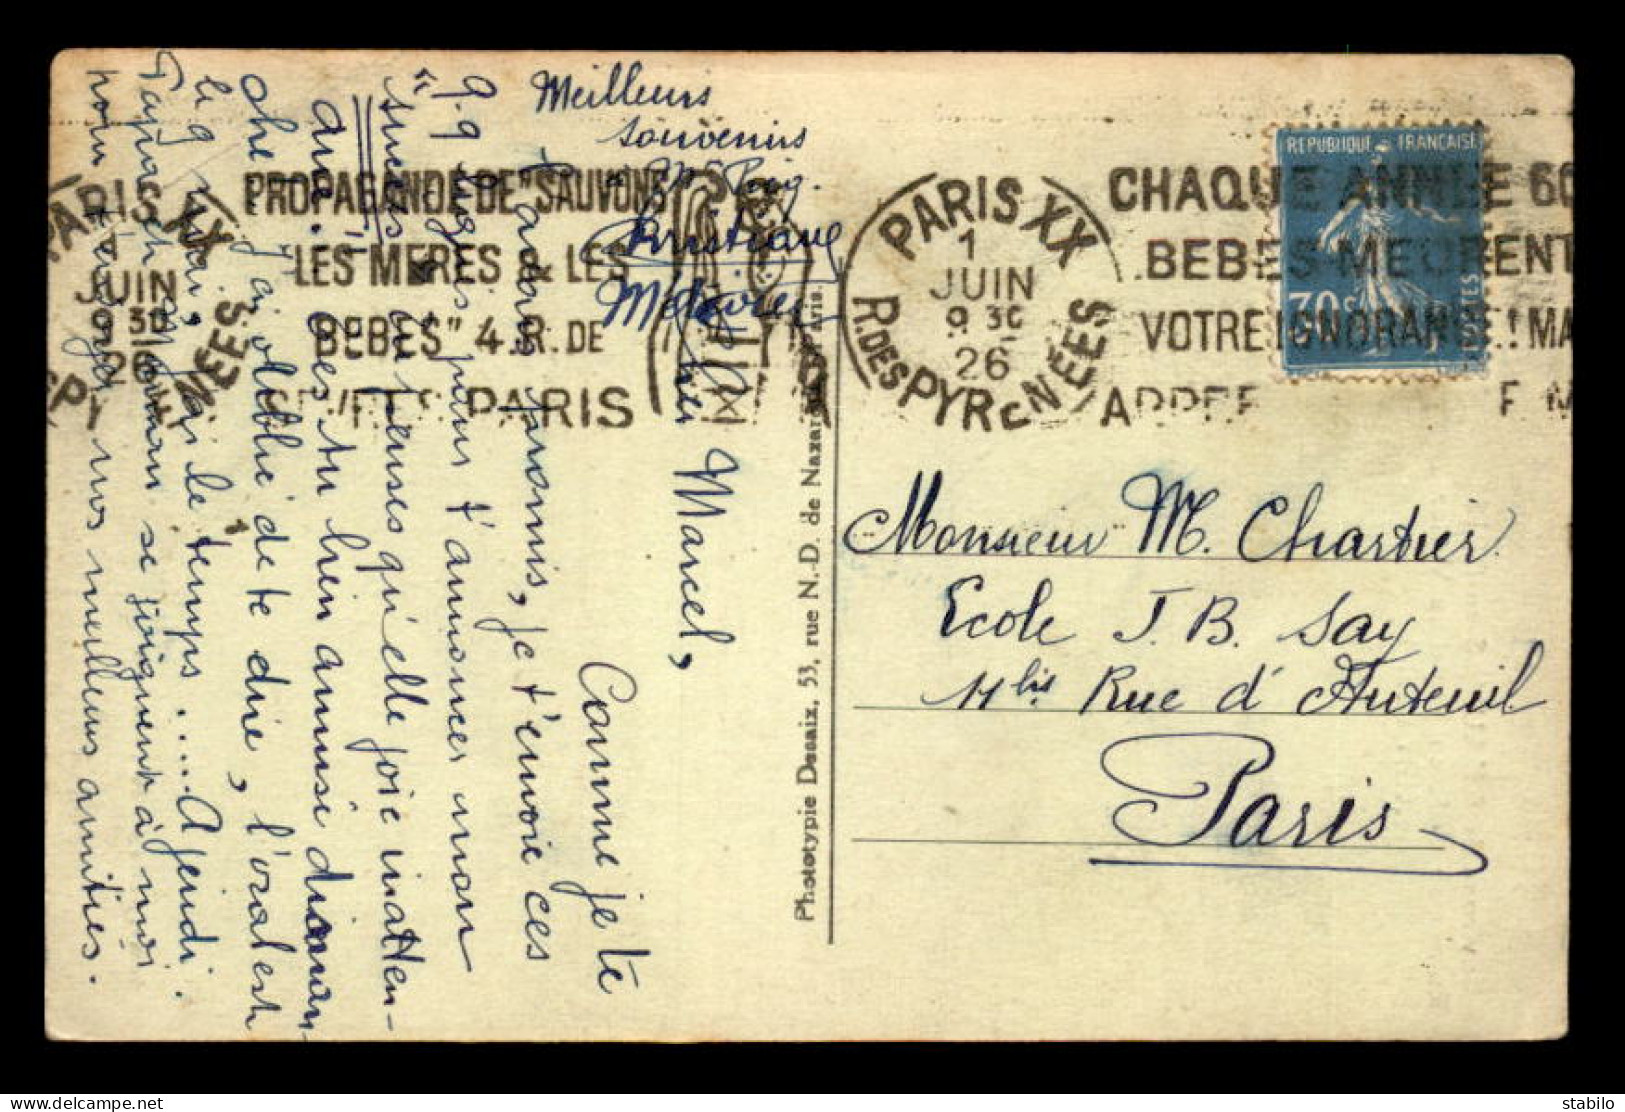 Cher Marcel,
Comme je te
l'avais promis, je t'envoie ces
q.q. lignes pour t'annoncer mon
"succès" au
Heureuse qu'elle joie inatten-
due! T'es tu bien amusé diman-
che? J'ai oublié de te dire, l'oral est
le 9 juin, j'ai le temps..... A jeudi.
Papa et maman se joignent à moi
pour t'envoyer nos meilleurs amitiés.
Meilleurs
souvenirs
PROPAGANDE DE "SAUVONS
LES MERES & LES
BEBES" 4.R. DE
PARIS
PARIS XX
1
JUIN
9 30
26
R. DES PYRENEES
PARIS XX
JUIN
9 30
26
PYRENEES
CHAQUE ANNEE 60
BEBES MEURENT
VOTRE IGNORANCE! MA
APPE
REPUBLIQUE FRANÇAISE
30c
POSTES
Monsieur M. Chartier
Ecole J. B. Say
11 bis Rue d'Auteuil
Paris
Phototypie Desaix, 53, rue N.-D. de Nazareth, Paris.
www.delcampe.net
stabilo